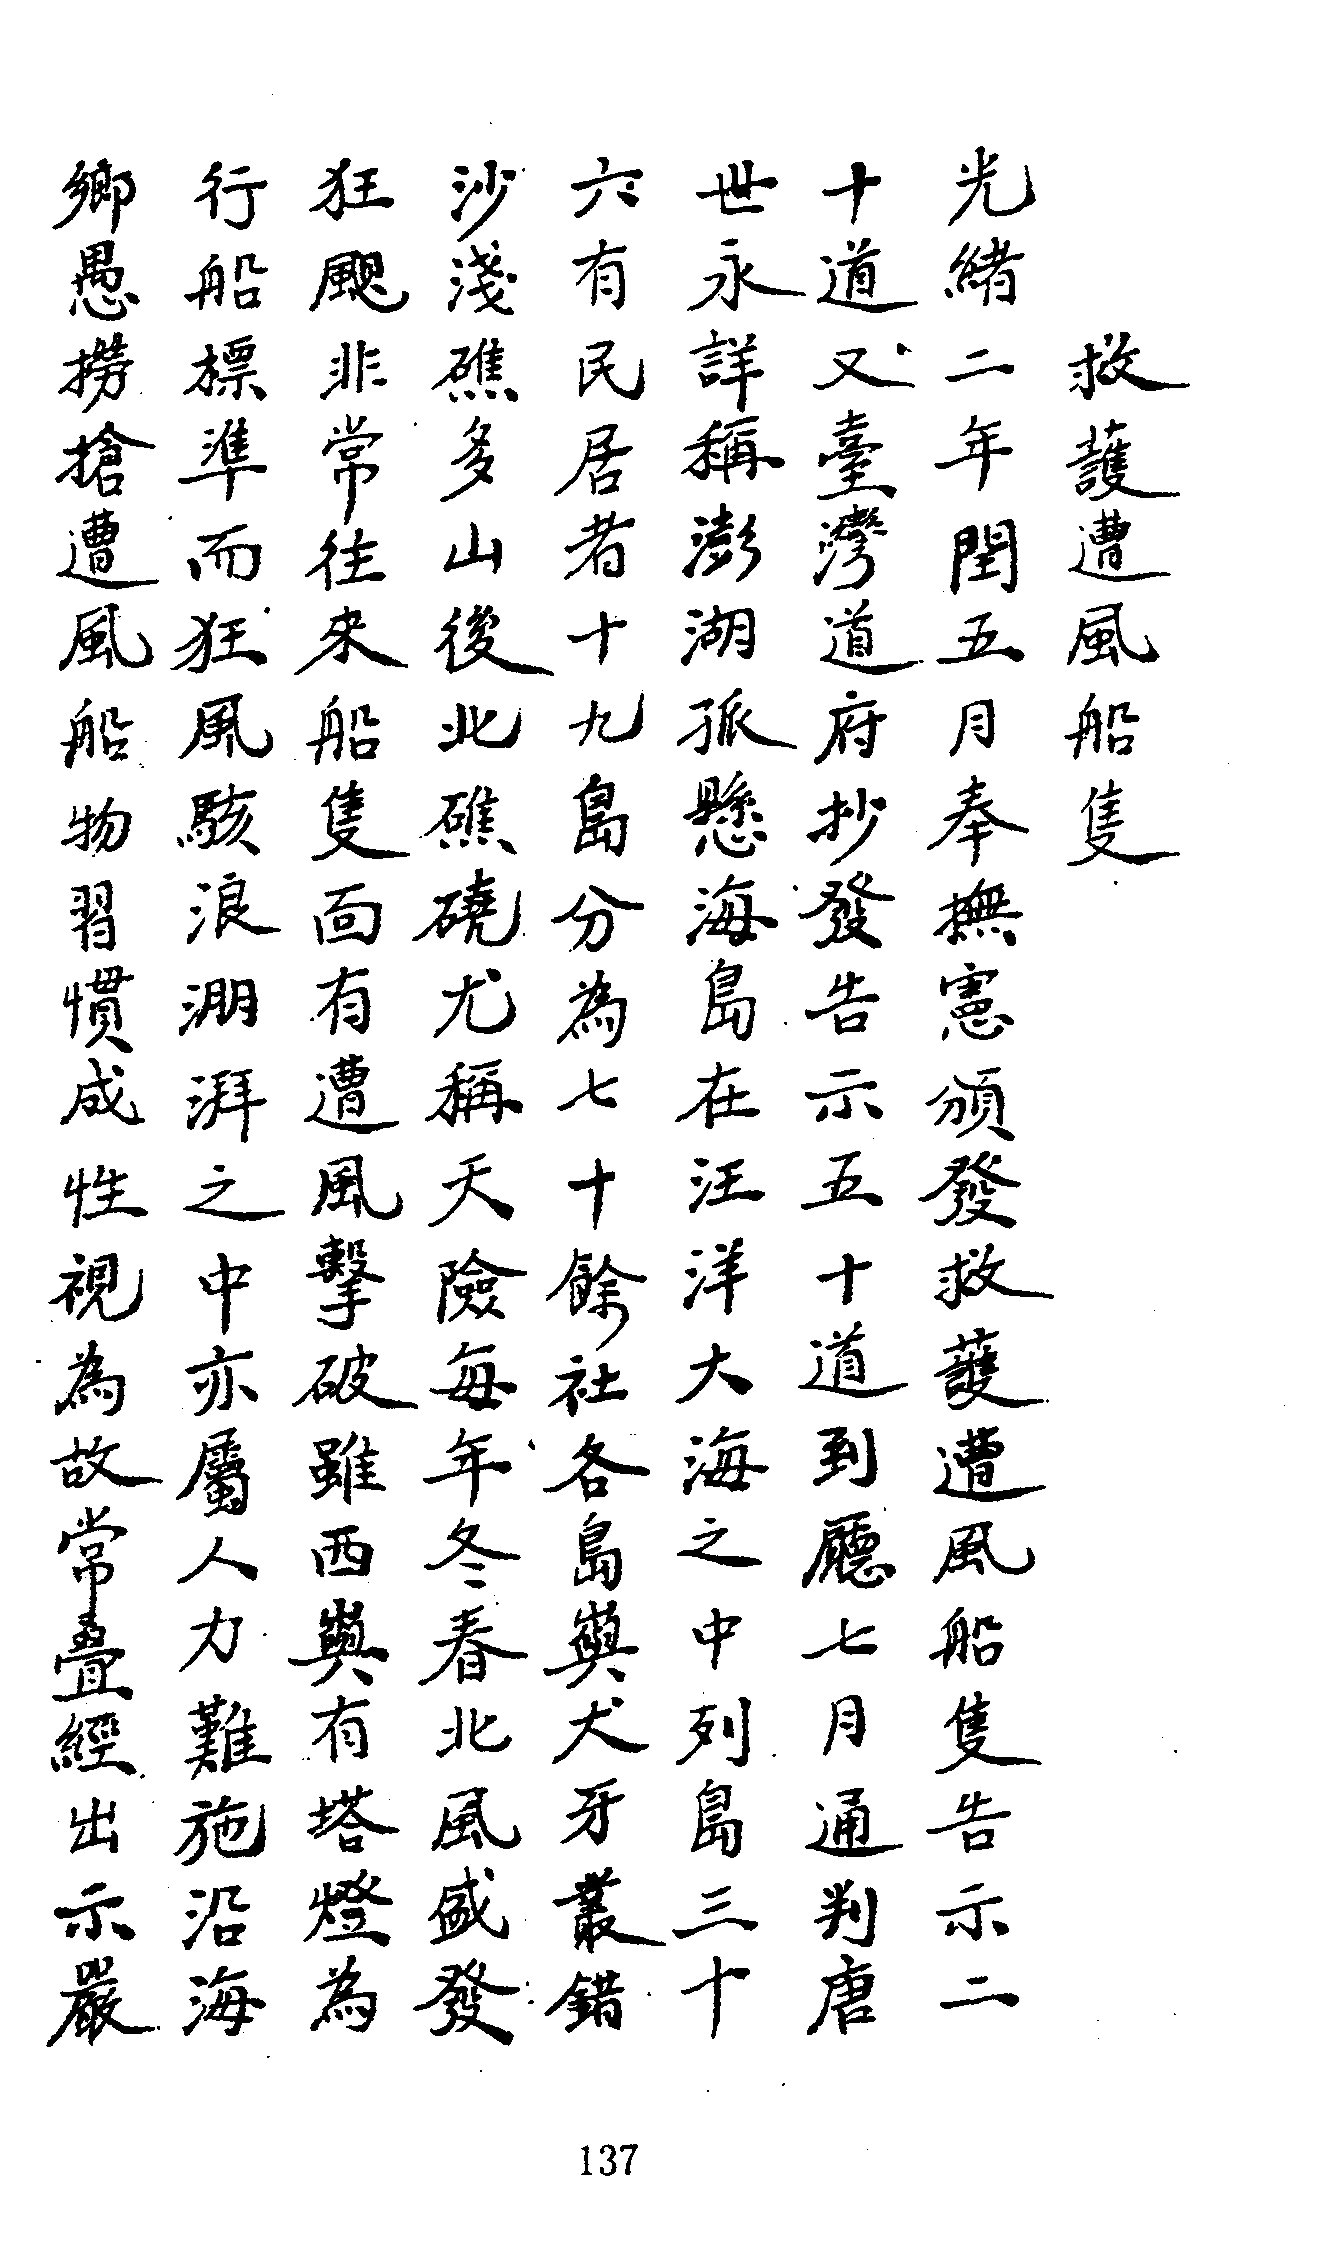 救護遭風船隻
光緒二年閏五月奉撫憲頒發救護遭風船隻告示二
十道又臺灣道府抄發告示五十道到廳七月通判唐
世永詳稱澎湖孤懸海島在汪洋大海之中列島三十
六有民居者十九島分為七十餘社各島嶼犬牙叢錯
沙淺礁多山後北礁磽尤稱天險每年冬春北風盛發
狂颶非常往來船隻面有遭風擊破雖西嶼有塔燈為
行船標準而狂風駭浪淜湃之中亦屬人力難施沿海
鄉愚撈搶遭風船物習慣成性視為故常疊經出示嚴
137